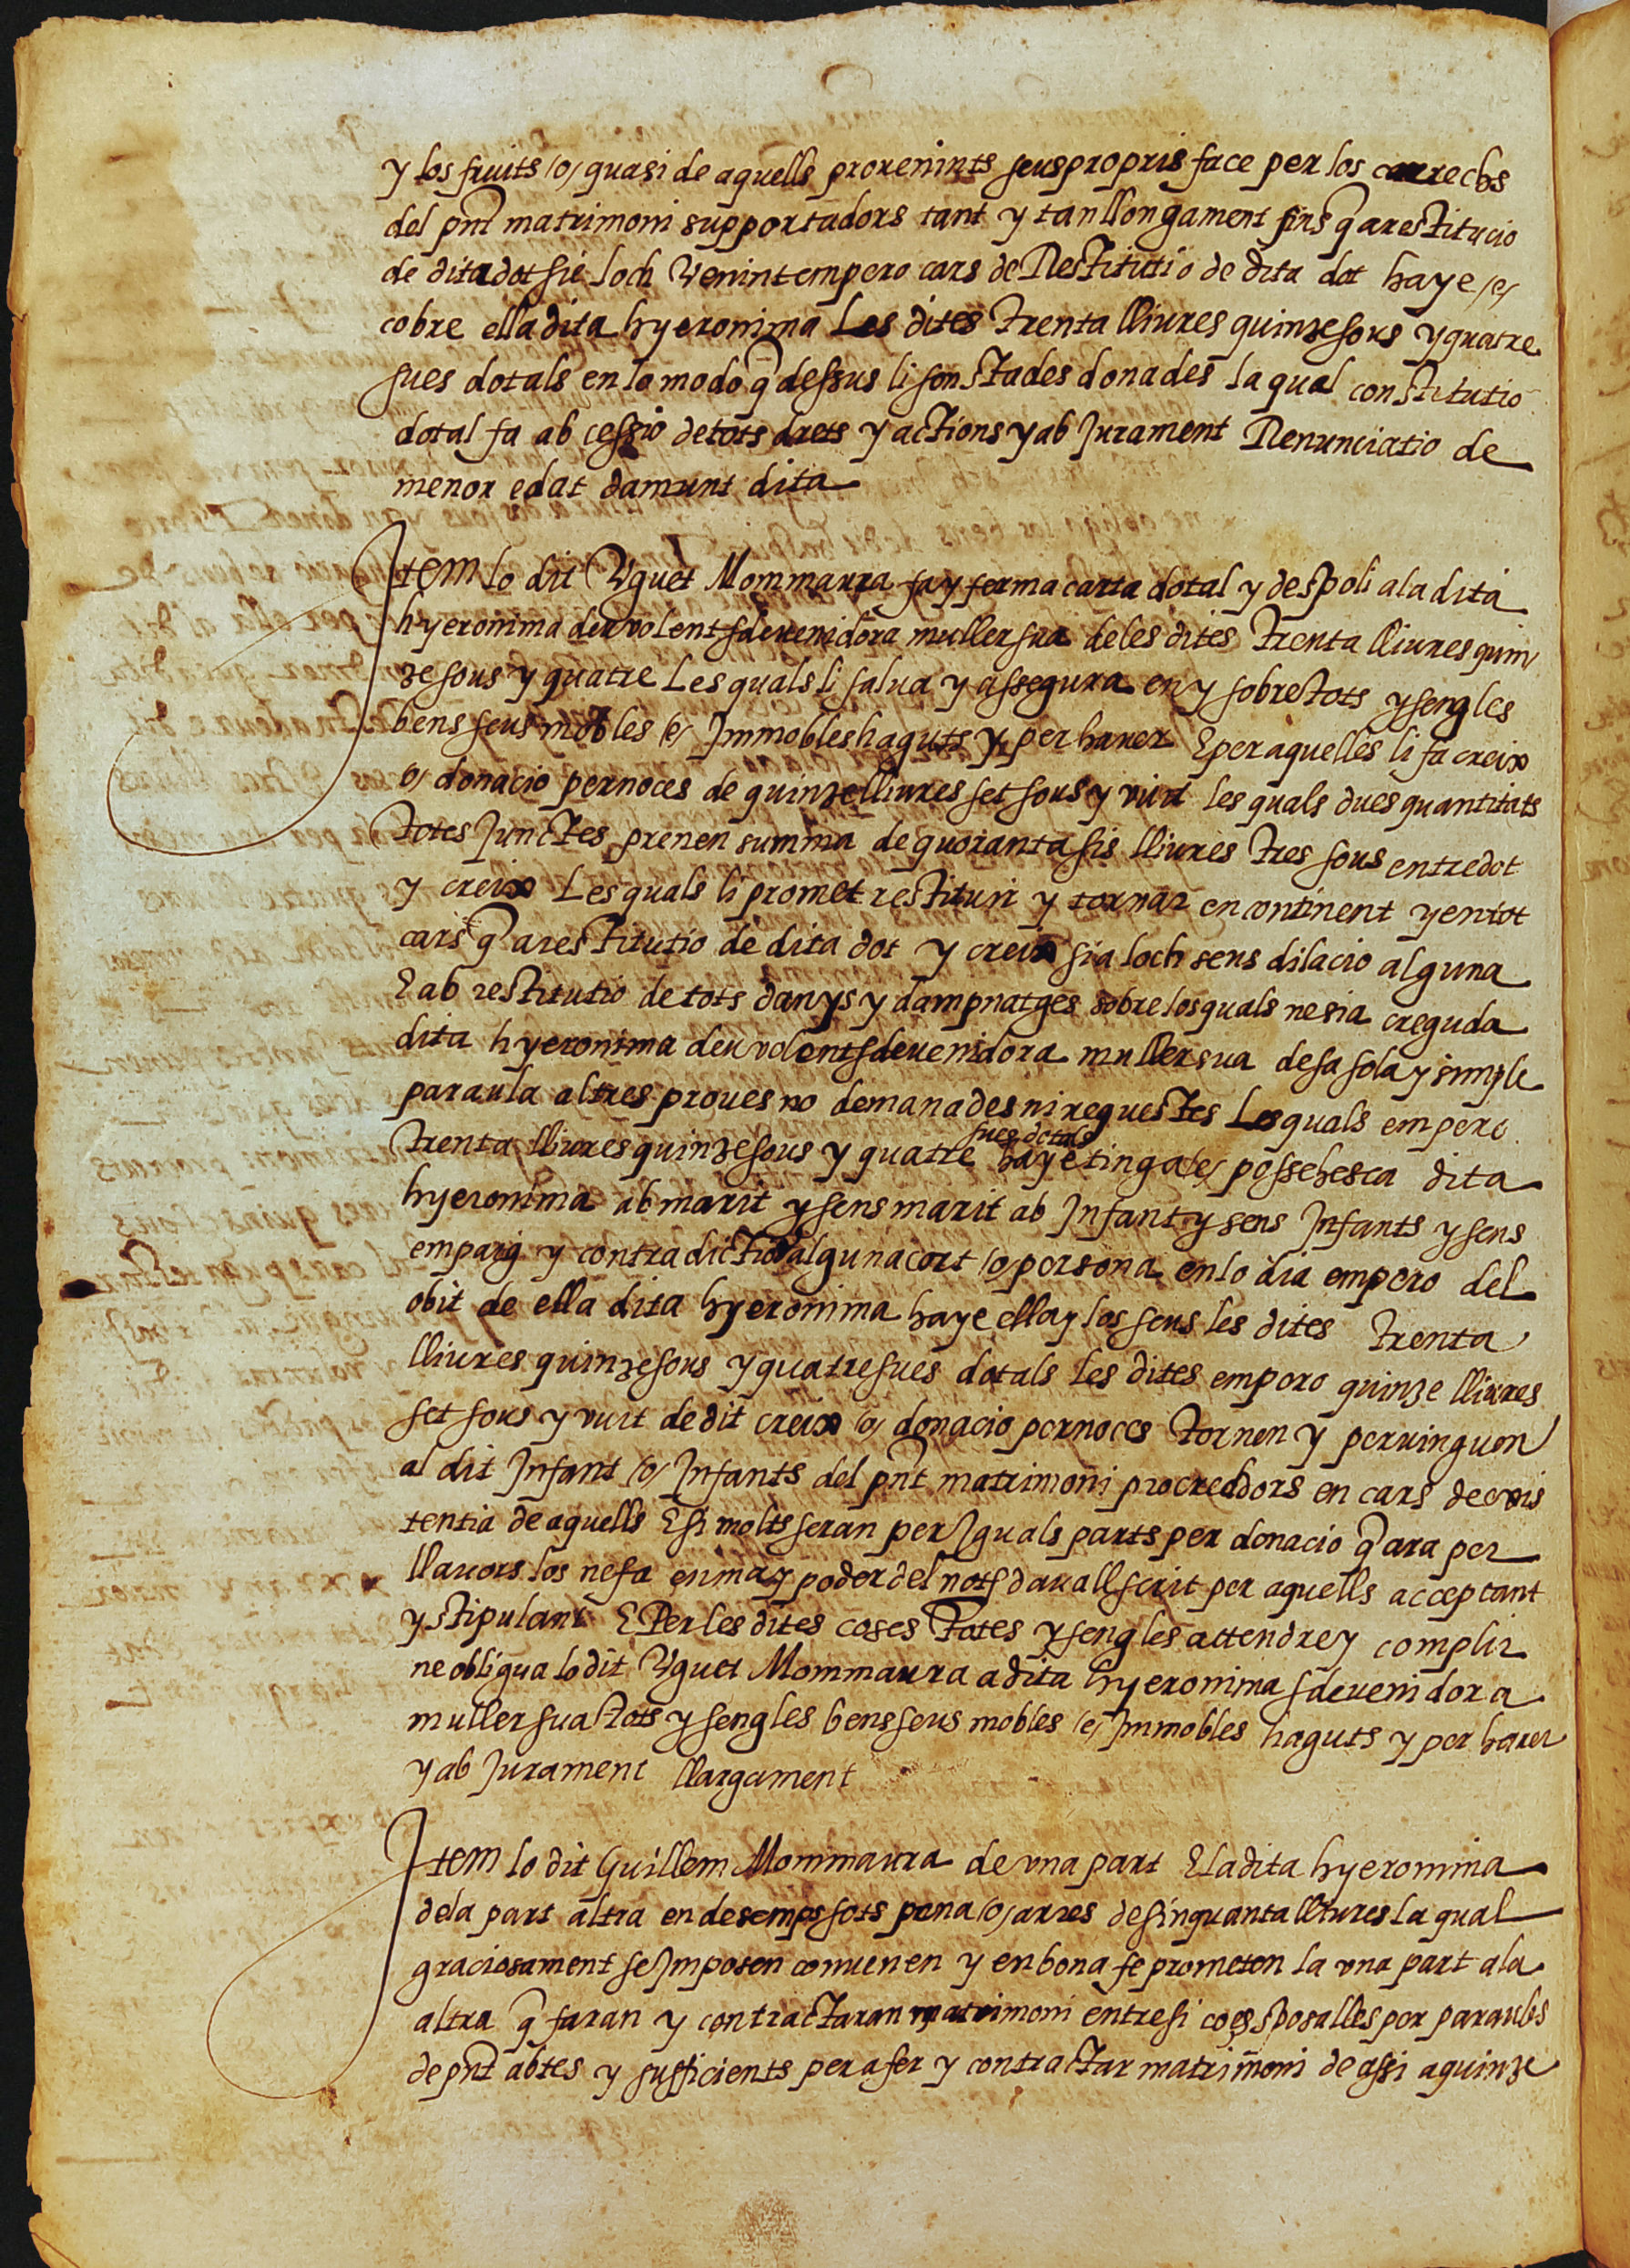 y los fruits /o/ quasi de aquells provenints seus propris face per los carrechs
del pnt matrimoni supportadors tant y tan llongament fins q̃ a restitucio
de dita dot sie loch Venint empero cars de Restitutio de dita dot haye /e/
cobre ella dita hyeronima Les dites trenta lliures quinze sous y quatre
sues dotals en lo modo q̃ dessus li son stades donades la qual constitutio
dotal fa ab cessio de tots drets y actions y ab Jurament Renunciatio de
menor edat damunt dita
Item lo dit Vguet Mommaura fa y ferma carta dotal y de spoli a la dita
hyeronima deu volent sdevenidora muller sua de les dites trenta lliures quin/
ze sous y quatre Les quals li salua y assegura en y sobre tots y sengles
bens seus mobles /e/ Immobles haguts y per haver E per aquelles li fa creix
/o/ donacio per noces de quinze lliures set sous y vuit les quals dues quantitats
totes Junctes prenen summa de quoranta sis lliures tres sous entre dot
y creix Les quals li promet restituir y tornar encontinent y en tot
cars q̃ a restitutio de dita dot y creix sia loch sens dilacio alguna
E ab restitutio de tots danys y dampnatges sobre los quals ne sia creguda
dita hyeronima deu volent sdevenidora muller sua de sa sola y simple
paraula altres proues no demanades ni requestes Les quals empero
trenta lliures quinze sous y quatre sues dotals haye tinga /e/ possehesca dita
hyeronima ab marit y sens marit ab Infant y sens Infants y sens
empaig y contradictio alguna cort /o/ persona en lo dia empero del
obit de ella dita hyeronima haye ella y los seus les dites trenta
lliures quinze sous y quatre sues dotals les dites empero quinze lliures
set sous y vuit de dit creix /o/ donacio per noces tornen y pervinguen
al dit Infant /o/ Infants del pnt matrimoni procreadors en cars de exis
tentia de aquells E si molts seran per Iguals parts per donacio q̃ ara per
llavors los ne fa en ma y poder del nots dauall scrit per aquells acceptant
y stipulant E Per les dites coses totes y sengles attendre y complir
ne obligua lo dit Vguet Mommaura a dita hyeronima sdevenidora
muller sua tots y sengles bens seus mobles /e/ Immobles haguts y per haver
y ab Jurament llargament
Item lo dit Guillem Mommaura de vna part E la dita hyeronima
de la part altra en desemps sots pena /o/ arres de sinquanta lliures la qual
graciosament se Imposen convenen y en bona fe prometen la vna part a la
altra q̃ faran y contractaran matrimoni entre si co es sposalles per paraules
de pnt abtes y sufficients per a fer y contractar matrimoni de assi a quinze